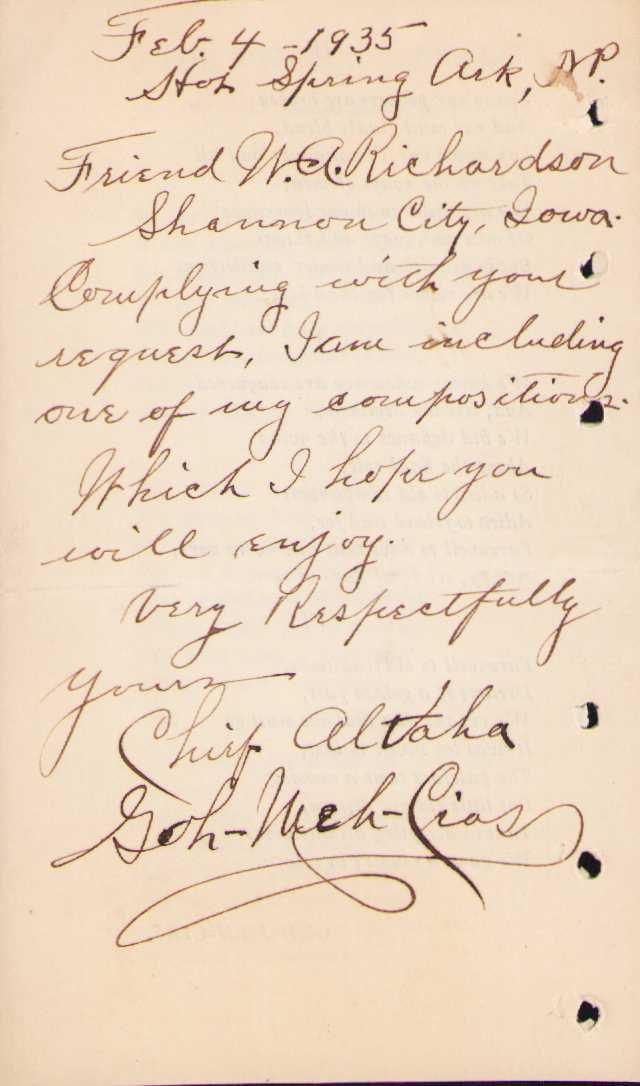 Feb. 4 - 1935
Hot Spring Ark, N.P.
Friend W. A. Richardson
Shannon City, Iowa.
Complying with your
request, I am including
one of my compositions.
Which I hope you
will enjoy.
Very Respectfully
yours
Chief Altaha
Goh-Meh-Cias